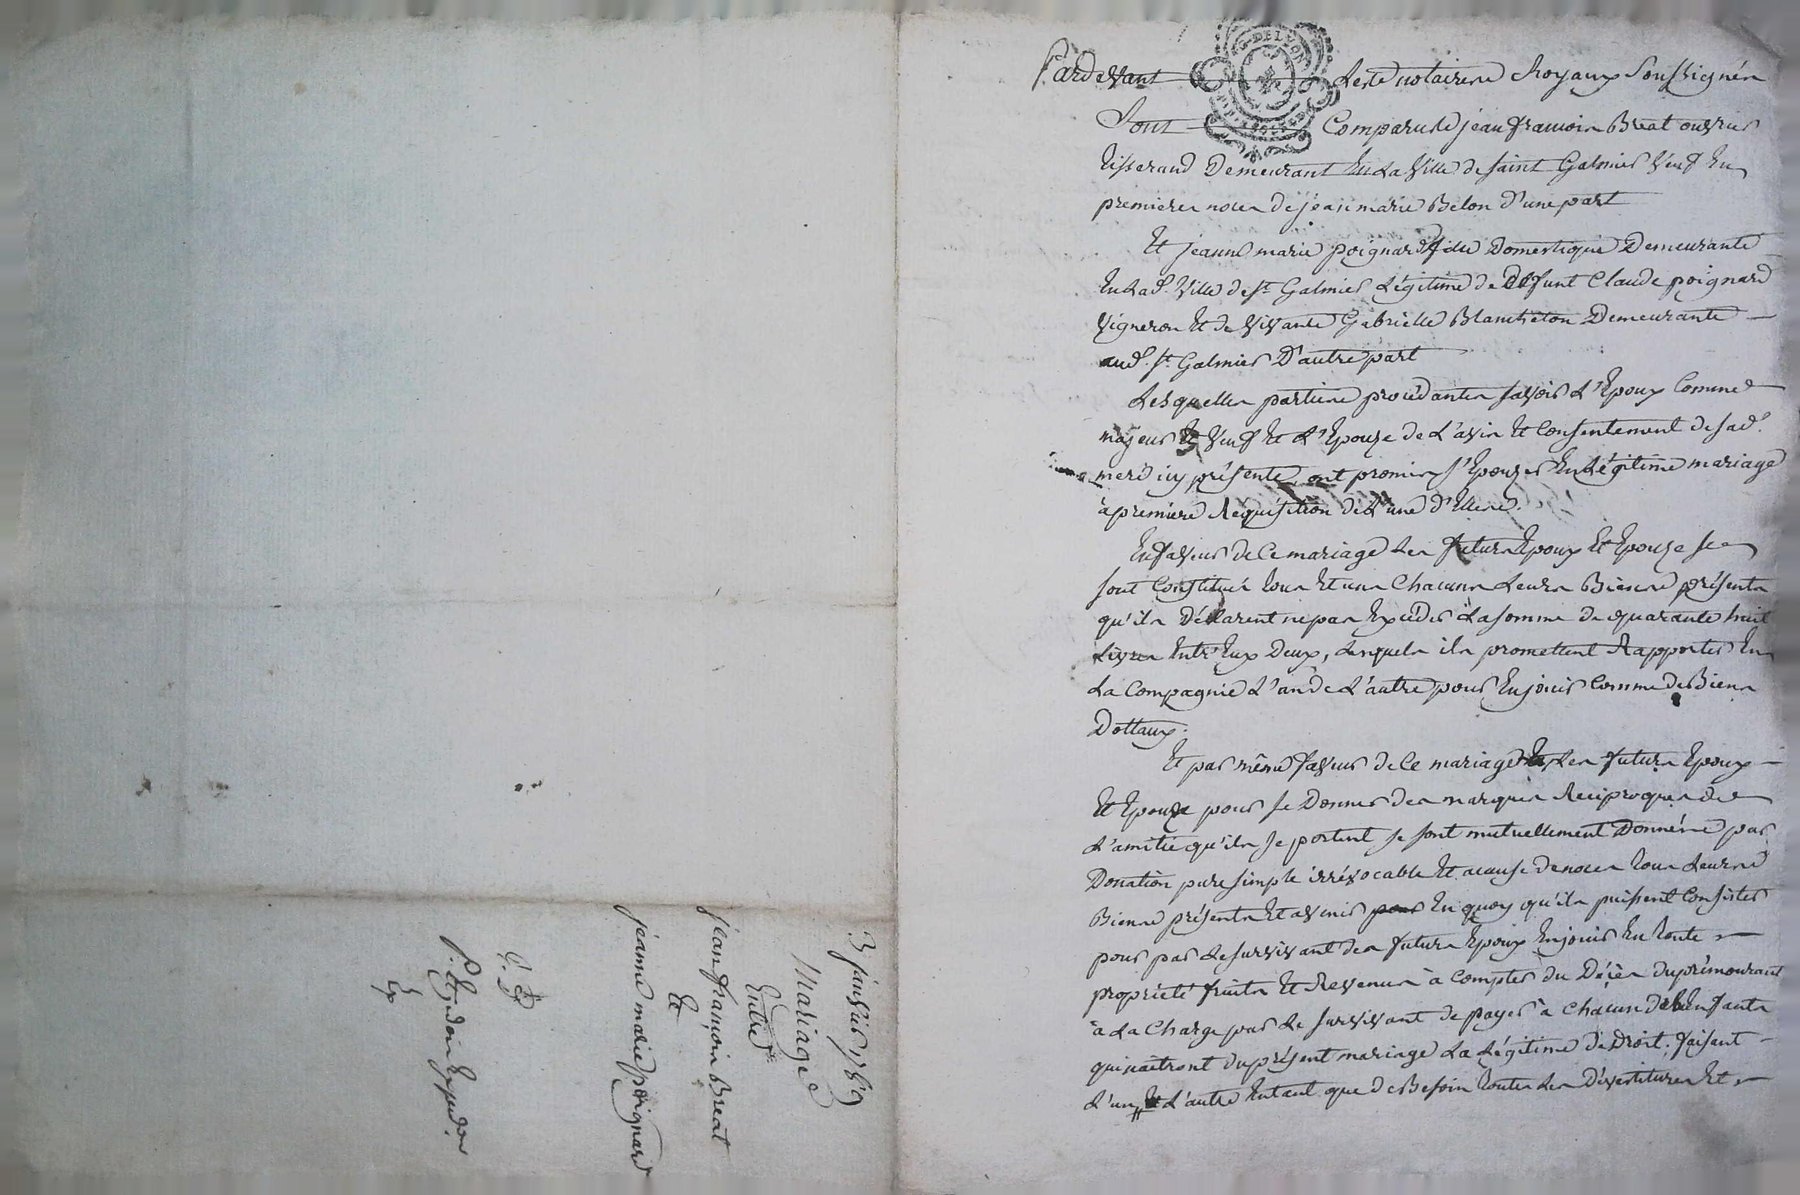 Pardevant Les notaires Royaux Soussignés
Sont Comparus jean françois Breat ouvrier
tisserand Demeurant En La Ville de saint Galmier Veuf En
premieres noces de jean marie Belon d'une part
Et jeanne marie poignard fille Domestique Demeurante
En Lad. Ville de St. Galmier Légitime de Deffunt Claude poignard
Vigneron Et de Vivante Gabrielle Blancheton Demeurante
aud. St. Galmier D'autre part
Lesquelles parties procédantes savoir L'Epoux Comme
majeur Et Veuf Et L'Epouze de L'avis Et Consentement de sad.
mere icy présente, ont promis s'Epouzer En Légitime mariage
a premiere Requisition de L'une d'Elles.
En faveur de Ce mariage Les futurs Epoux Et Epouze se
sont Constitué tous Et uns Chacuns Leurs Biens présents
qu'ils Déclarent ne pas Excéder La somme de quarante huit
Livres Entr'Eux Deux, Lesquels ils promettent Rapporter En
La Compagnie L'un de L'autre pour En jouir Comme de Biens
Dottaux.
Et par même faveur de Ce mariage Les futurs Epoux
Et Epouze pour se Donner des marques Reciproques de
L'amitié qu'ils se portent se sont mutuellement Donnés par
Donation pure simple irrévocable Et a cause de noces tous Leurs
Biens présents Et avenir En quoy qu'ils puissent Consister
pour par Le survivant des futurs Epoux En jouir En toute
propriété fruits Et Revenus à Compter du Décès du prémourant
à La Charge par Le survivant de payer à Chacun des Enfants
qui naîtront du présent mariage La Légitime de Droit; faisant
L'un Et L'autre En tant que de Besoin toutes Les Dévestitures Et
3 janvier 1789
Mariage
Entre
jean françois Breat
Et
jeanne marie poignard